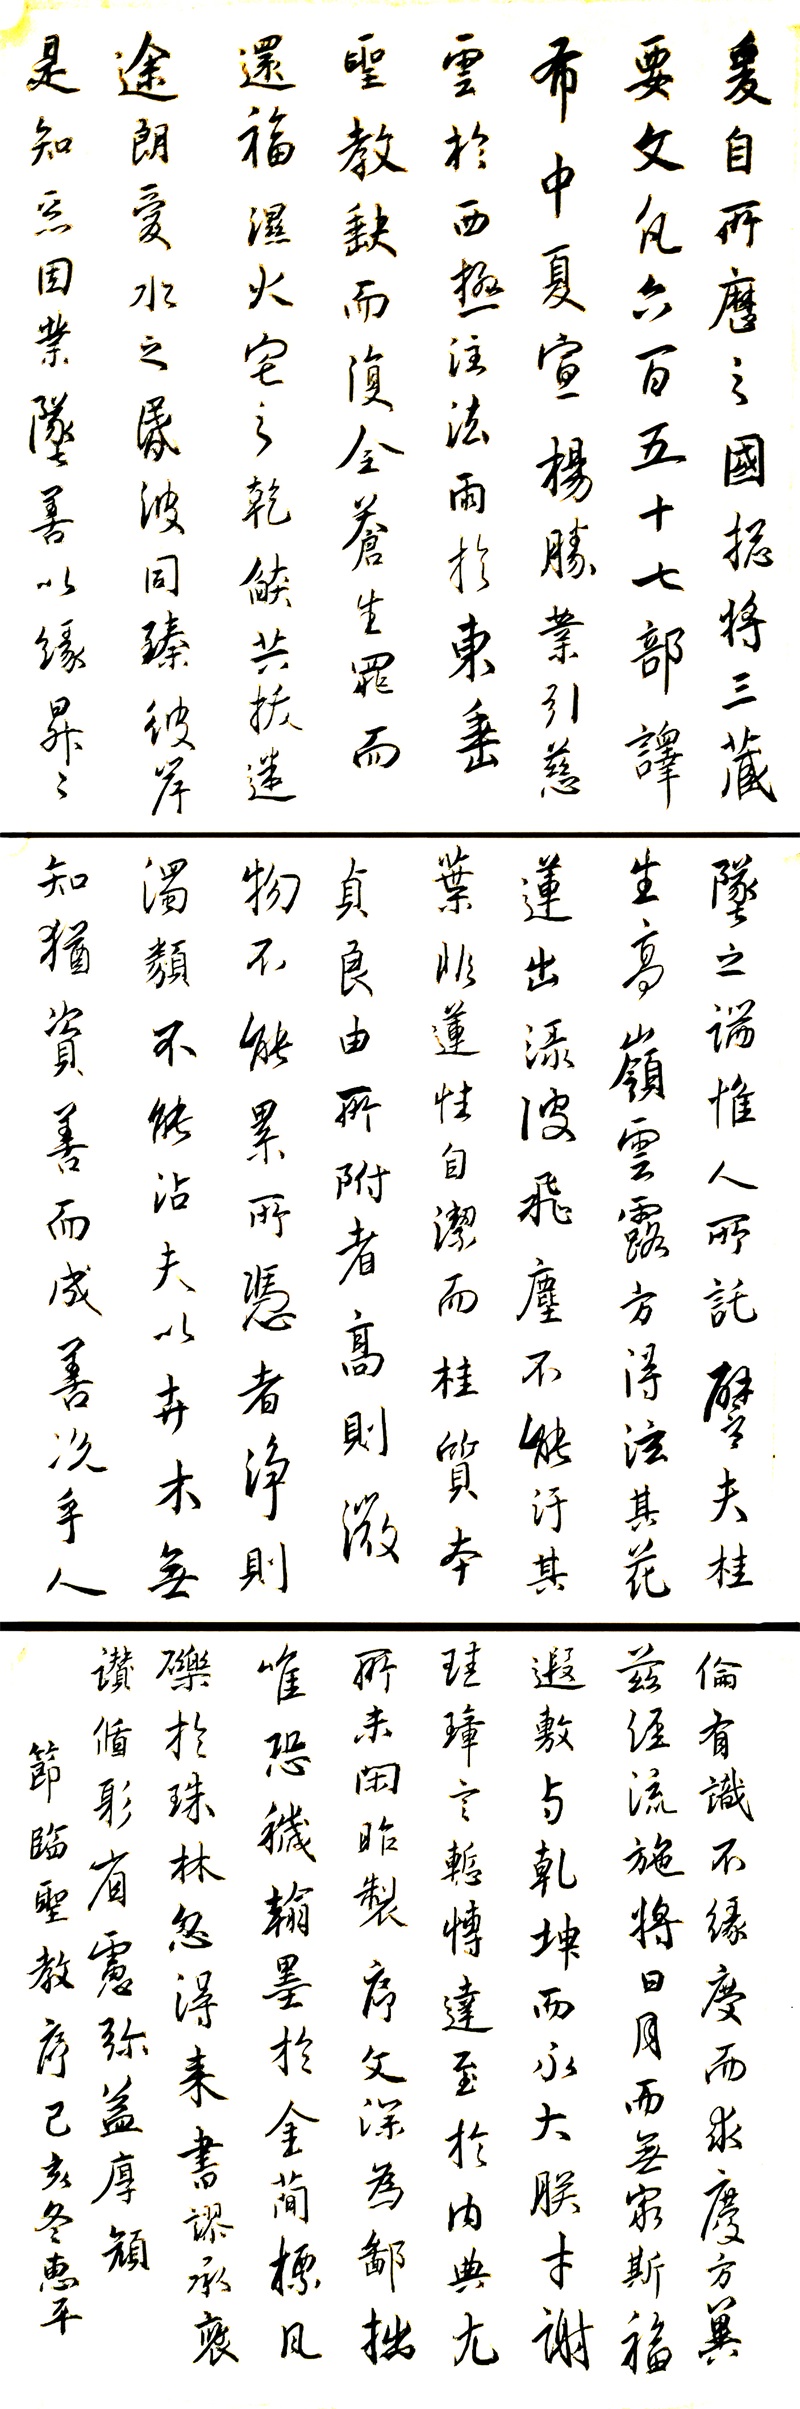 爰自所歷之國捴将三藏
要文凡六百五十七部譯
布中夏宣楊勝業引慈
雲於西極注法雨於東垂
聖教缺而復全蒼生罪而
還福濕火宅之乾燄共拔迷
途朗愛水之昬波同臻彼岸
是知惡因業墜善以緣昇〻
墜之端惟人所託譬夫桂
生高嶺雲露方得泫其花
蓮出淥波飛塵不能汙其
葉非蓮性自潔而桂質本
貞良由所附者高則微
物不能累所憑者淨則
濁類不能沾夫以卉木無
知猶資善而成善況乎人
倫有識不緣慶而求慶方冀
茲經流施將日月而無窮斯福
遐敷与乾坤而永大朕才謝
珪璋言慙博達至於內典尤
所未閑昨製序文深為鄙拙
唯恐穢翰墨於金簡標瓦
礫於珠林忽得来書謬承褒
讚循躬省慮弥益厚顏
節臨聖教序己亥冬惠平